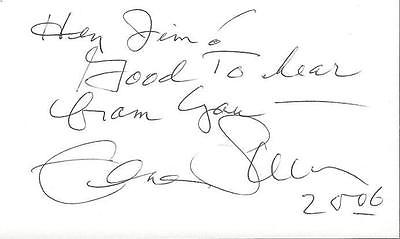 Hey Jim!
Good To hear
from you —
2006